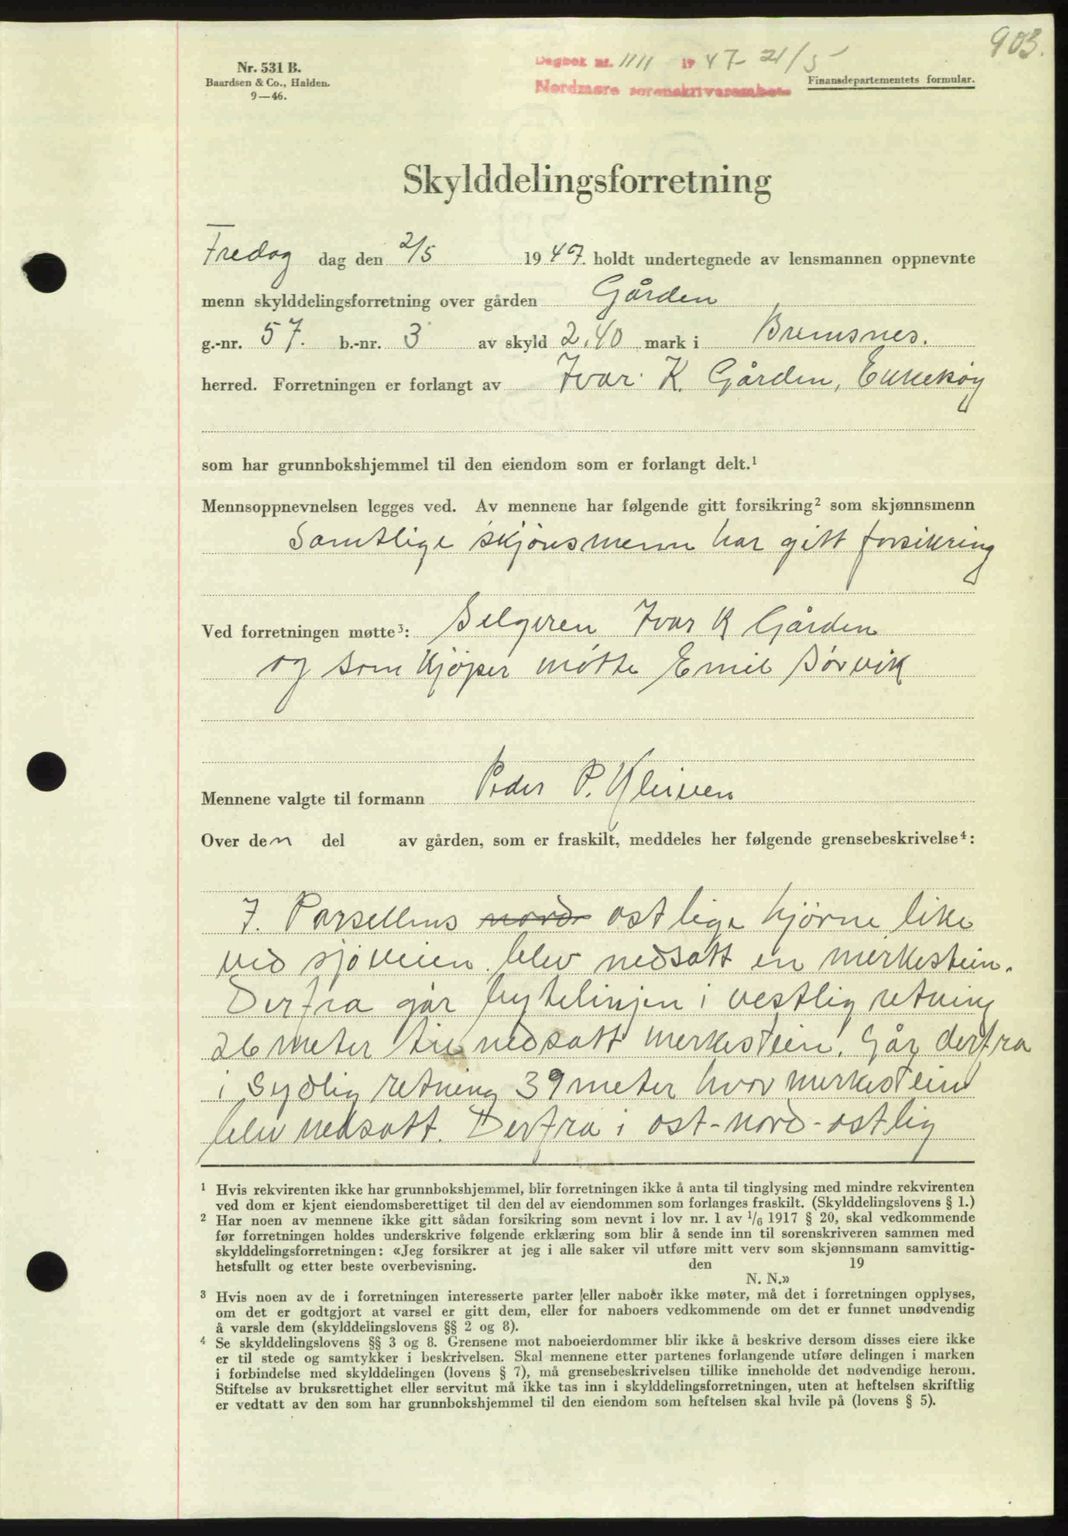 903.
Nr. 531 B.
Baardsen & Co., Halden.
9—46.
Dagbok nr. 1111 1947- 21/5
Nordmøre sorenskriverembete
Finansdepartementets formular.
Skylddelingsforretning
Fredag dag den 2/5 1947. holdt undertegnede av lensmannen oppnevnte
menn skylddelingsforretning over gården Gården
g.-nr. 57. b.-nr. 3 av skyld 2,40 mark i Bremsnes.
herred. Forretningen er forlangt av Ivar K. Gården,
som har grunnbokshjemmel til den eiendom som er forlangt delt.¹
Mennsoppnevnelsen legges ved. Av mennene har følgende gitt forsikring² som skjønnsmenn
Samtlige skjønsmenn har gitt forsikring
Ved forretningen møtte³: Selgeren Ivar K Gården
og som kjøper møtte Emil Sørvik
Mennene valgte til formann Peder P. Kleiven
Over den del av gården, som er fraskilt, meddeles her følgende grensebeskrivelse⁴:
I. Parsellens nord ostlige hjørne like
ved sjøveien blev nedsatt en merkestein.
Derfra går bytelinjen i vestlig retning
26 meter til nedsatt merkestein. Går derfra
i sydlig retning 39 meter hvor merkestein
blev nedsatt. Derfra i ost-nord-ostlig
¹ Hvis rekvirenten ikke har grunnbokshjemmel, blir forretningen ikke å anta til tinglysing med mindre rekvirenten
ved dom er kjent eiendomsberettiget til den del av eiendommen som forlanges fraskilt. (Skylddelingslovens § 1.)
² Har noen av mennene ikke gitt sådan forsikring som nevnt i lov nr. 1 av 1/6 1917 § 20, skal vedkommende
før forretningen holdes underskrive følgende erklæring som blir å sende inn til sorenskriveren sammen med
skylddelingsforretningen: «Jeg forsikrer at jeg i alle saker vil utføre mitt verv som skjønnsmann samvittig-
hetsfullt og etter beste overbevisning. den 19
N. N.»
³ Hvis noen av de i forretningen interesserte parter (eller naboer ikke møter, må det i forretningen opplyses,
om det er godtgjort at varsel er gitt dem, eller for naboers vedkommende om det er funnet unødvendig
å varsle dem (skylddelingslovens §§ 2 og 8).
⁴ Se skylddelingslovens §§ 3 og 8. Grensene mot naboeierdommer blir ikke å beskrive dersom disses eiere ikke
er til stede og samtykker i beskrivelsen. Skal mennene etter partenes forlangende utføre delingen i marken
i forbindelse med skylddelingen (lovens § 7), må grensebeskrivelsen tillike inneholde det nødvendige herom.
Stiftelse av bruksrettighet eller servitut må ikke tas inn i skylddelingsforretningen, uten at heftelsen skriftlig
er vedtatt av den som har grunnbokshjemmel til den eiendom som heftelsen skal hvile på (lovens § 5).